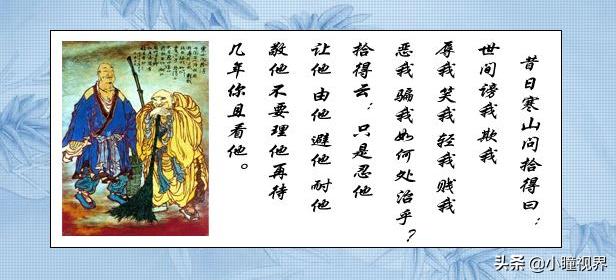 昔日寒山问拾得曰：
世间谤我欺我
辱我笑我轻我贱我
恶我骗我如何处治乎？
拾得云：只是忍他
让他由他避他耐他
敬他不要理他再待
几年你且看他。
头条 @小瞳视界